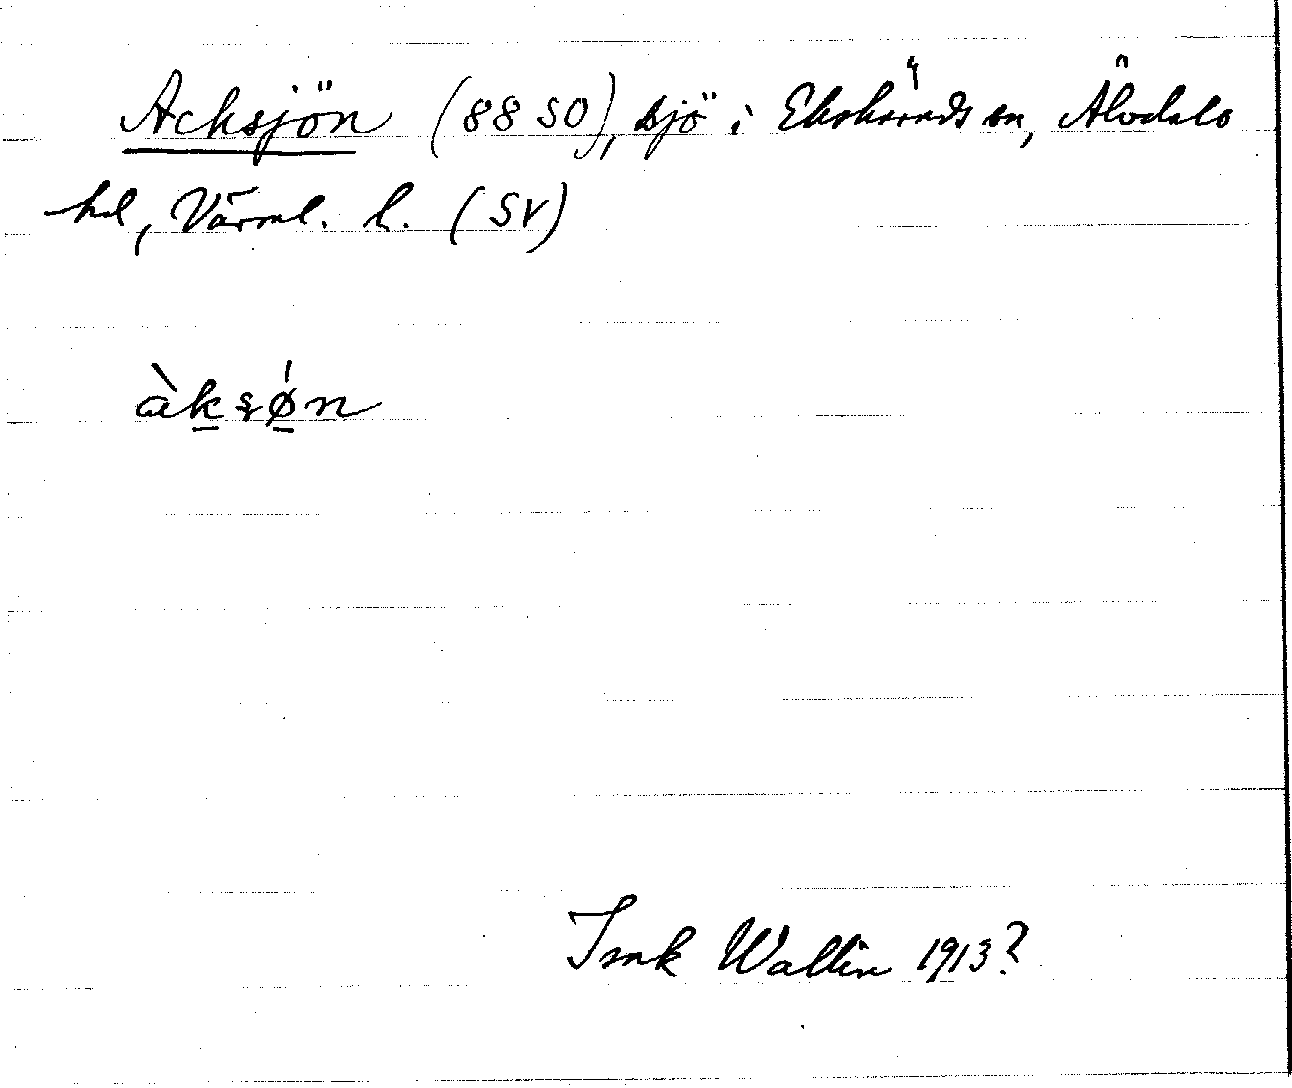 Acksjön (88 SO), sjö i Ekshärads sn, Älvdals
hd, Värml. l. (SV)
àksǿn
Isak Wallin 1913?